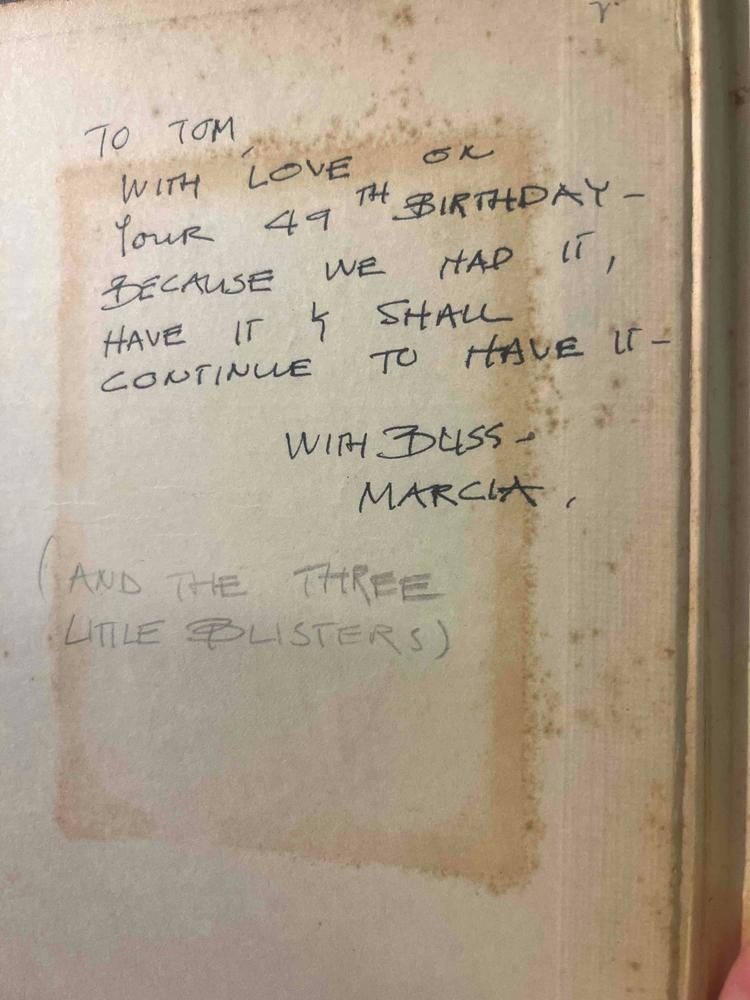 TO TOM,
WITH LOVE ON
YOUR 49TH BIRTHDAY –
BECAUSE WE HAD IT,
HAVE IT & SHALL
CONTINUE TO HAVE IT –
WITH BLISS –
MARCIA.
(AND THE THREE
LITTLE BLISTERS)